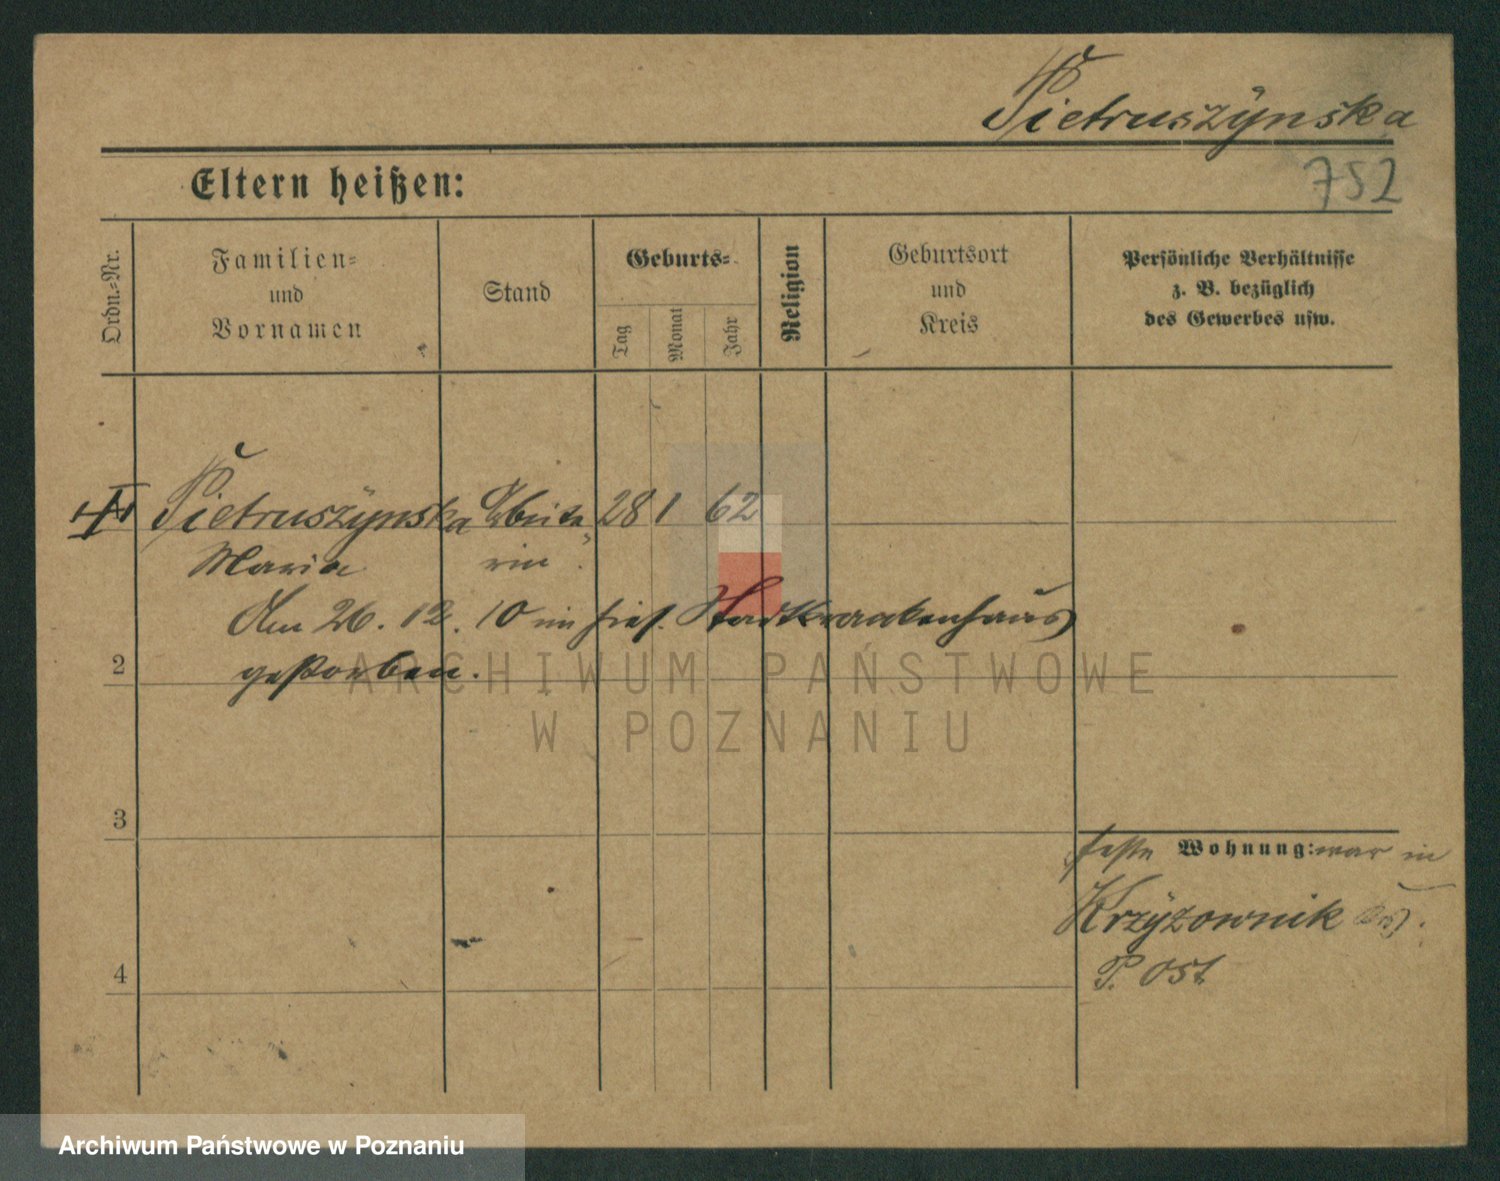 Pietruszÿnska
752
Eltern heißen:
Ordn.=Nr.
Familien=
und
Vornamen
Stand
Geburts=
Tag
Monat
Jahr
Religion
Geburtsort
und
Kreis
Persönliche Verhältnisse
z. B. bezüglich
des Gewerbes usw.
Pietruszÿnska Arbeite 28 1 62
Maria rin
Am 26. 12. 10 im hies. Stadtkrankenhaus
2 gestorben.
ARCHIWUM PAŃSTWOWE
W POZNANIU
3
feste Wohnung: war in
Krzÿzownik Krs.
4 P. Ost
Archiwum Państwowe w Poznaniu